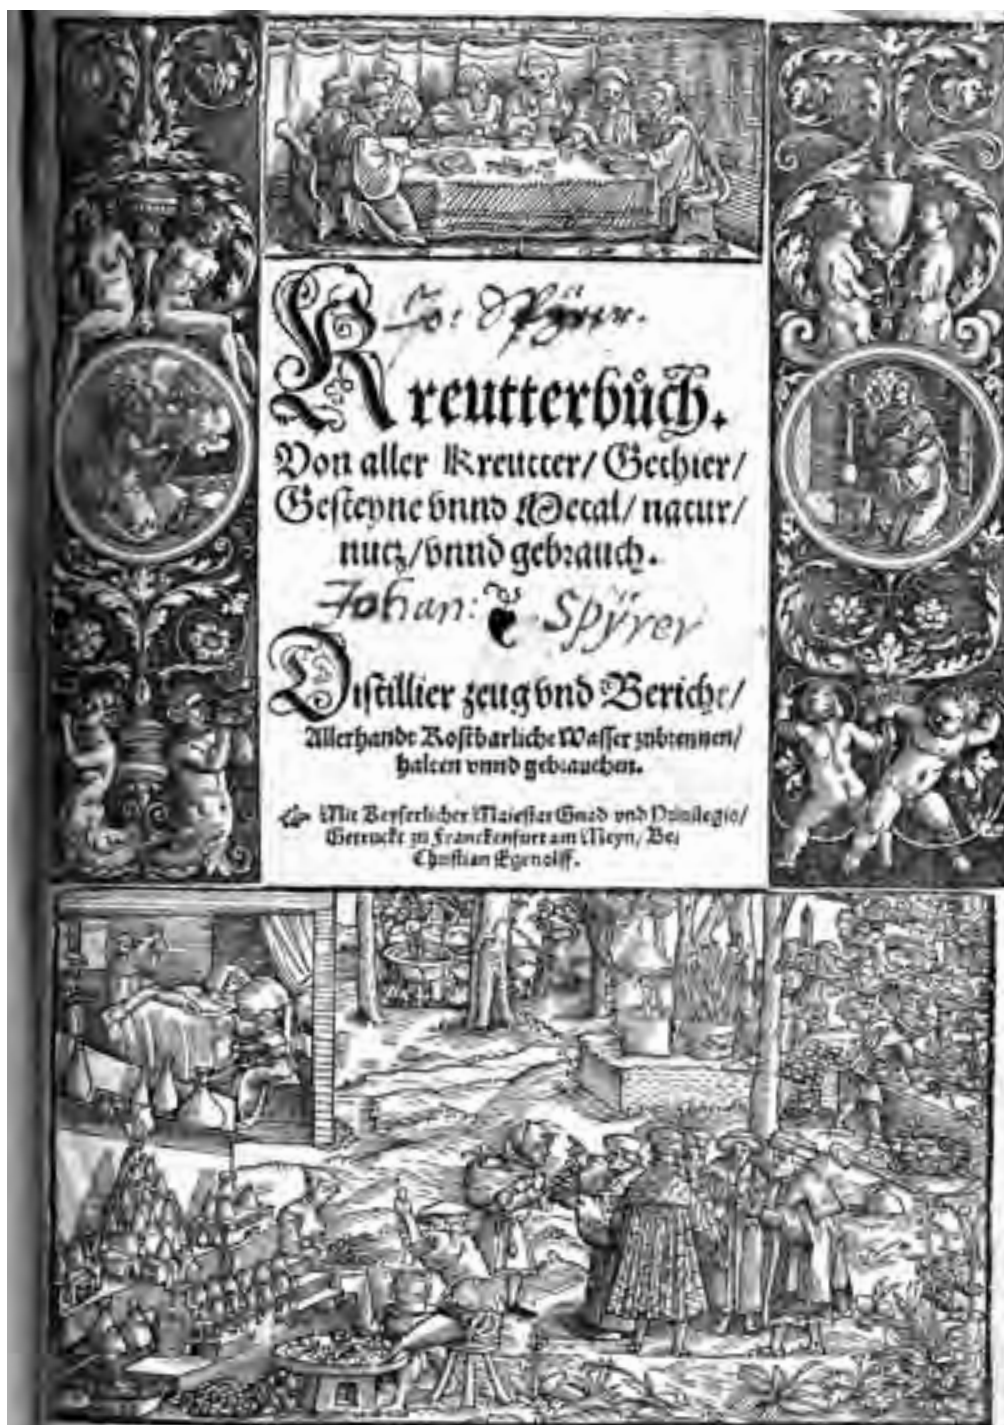 Jo: Spÿrer.
Kreutterbůch.
Von aller Kreutter/ Gethier/
Gesteyne vnnd Metal/ natur/
nutz/ vnnd gebrauch.
Johan: Spÿrer
Distillier zeug vnd Bericht/
Allerhande Kostbarliche Wasser zubrennen/
halten vnnd gebrauchen.
Mit Keyserlicher Maiestat Gnad vnd Priuilegio/
Getruckt zu Franckenfurt am Meyn/ Bei
Christian Egenolff.